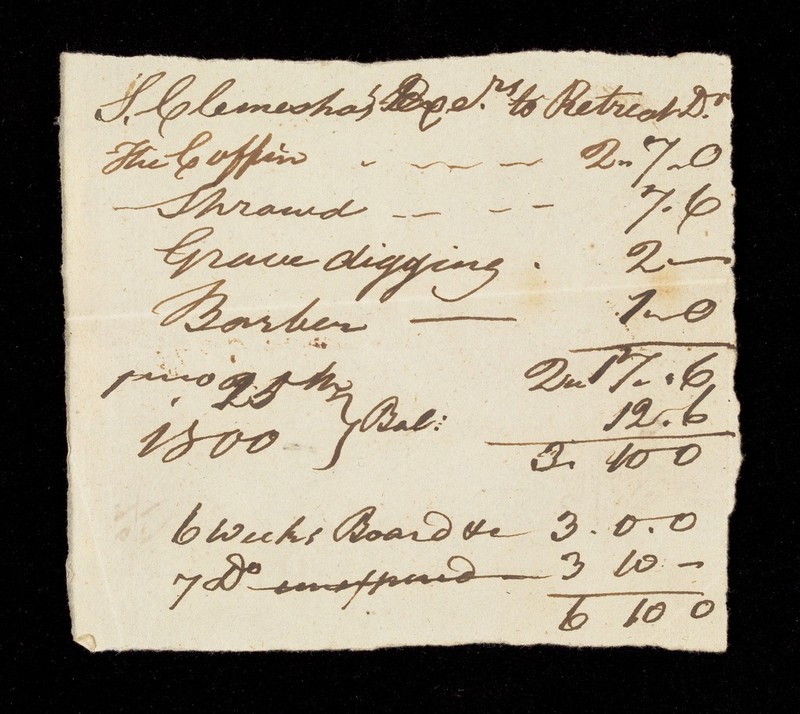 S. Clemesha's Exers. to Retreat Dr
The Coffin - - - - 2 " 7 " 0
- Shroud -- - - 7. 6
Grave digging . 2 —
Barber — 1 " 0
2 " 17 " 6
12 . 6
25th
1800 } Bal: 3. 10 0
6 Weeks Board &c 3 . 0 . 0
7 Do unexpired — 3 10 -
6 10 0